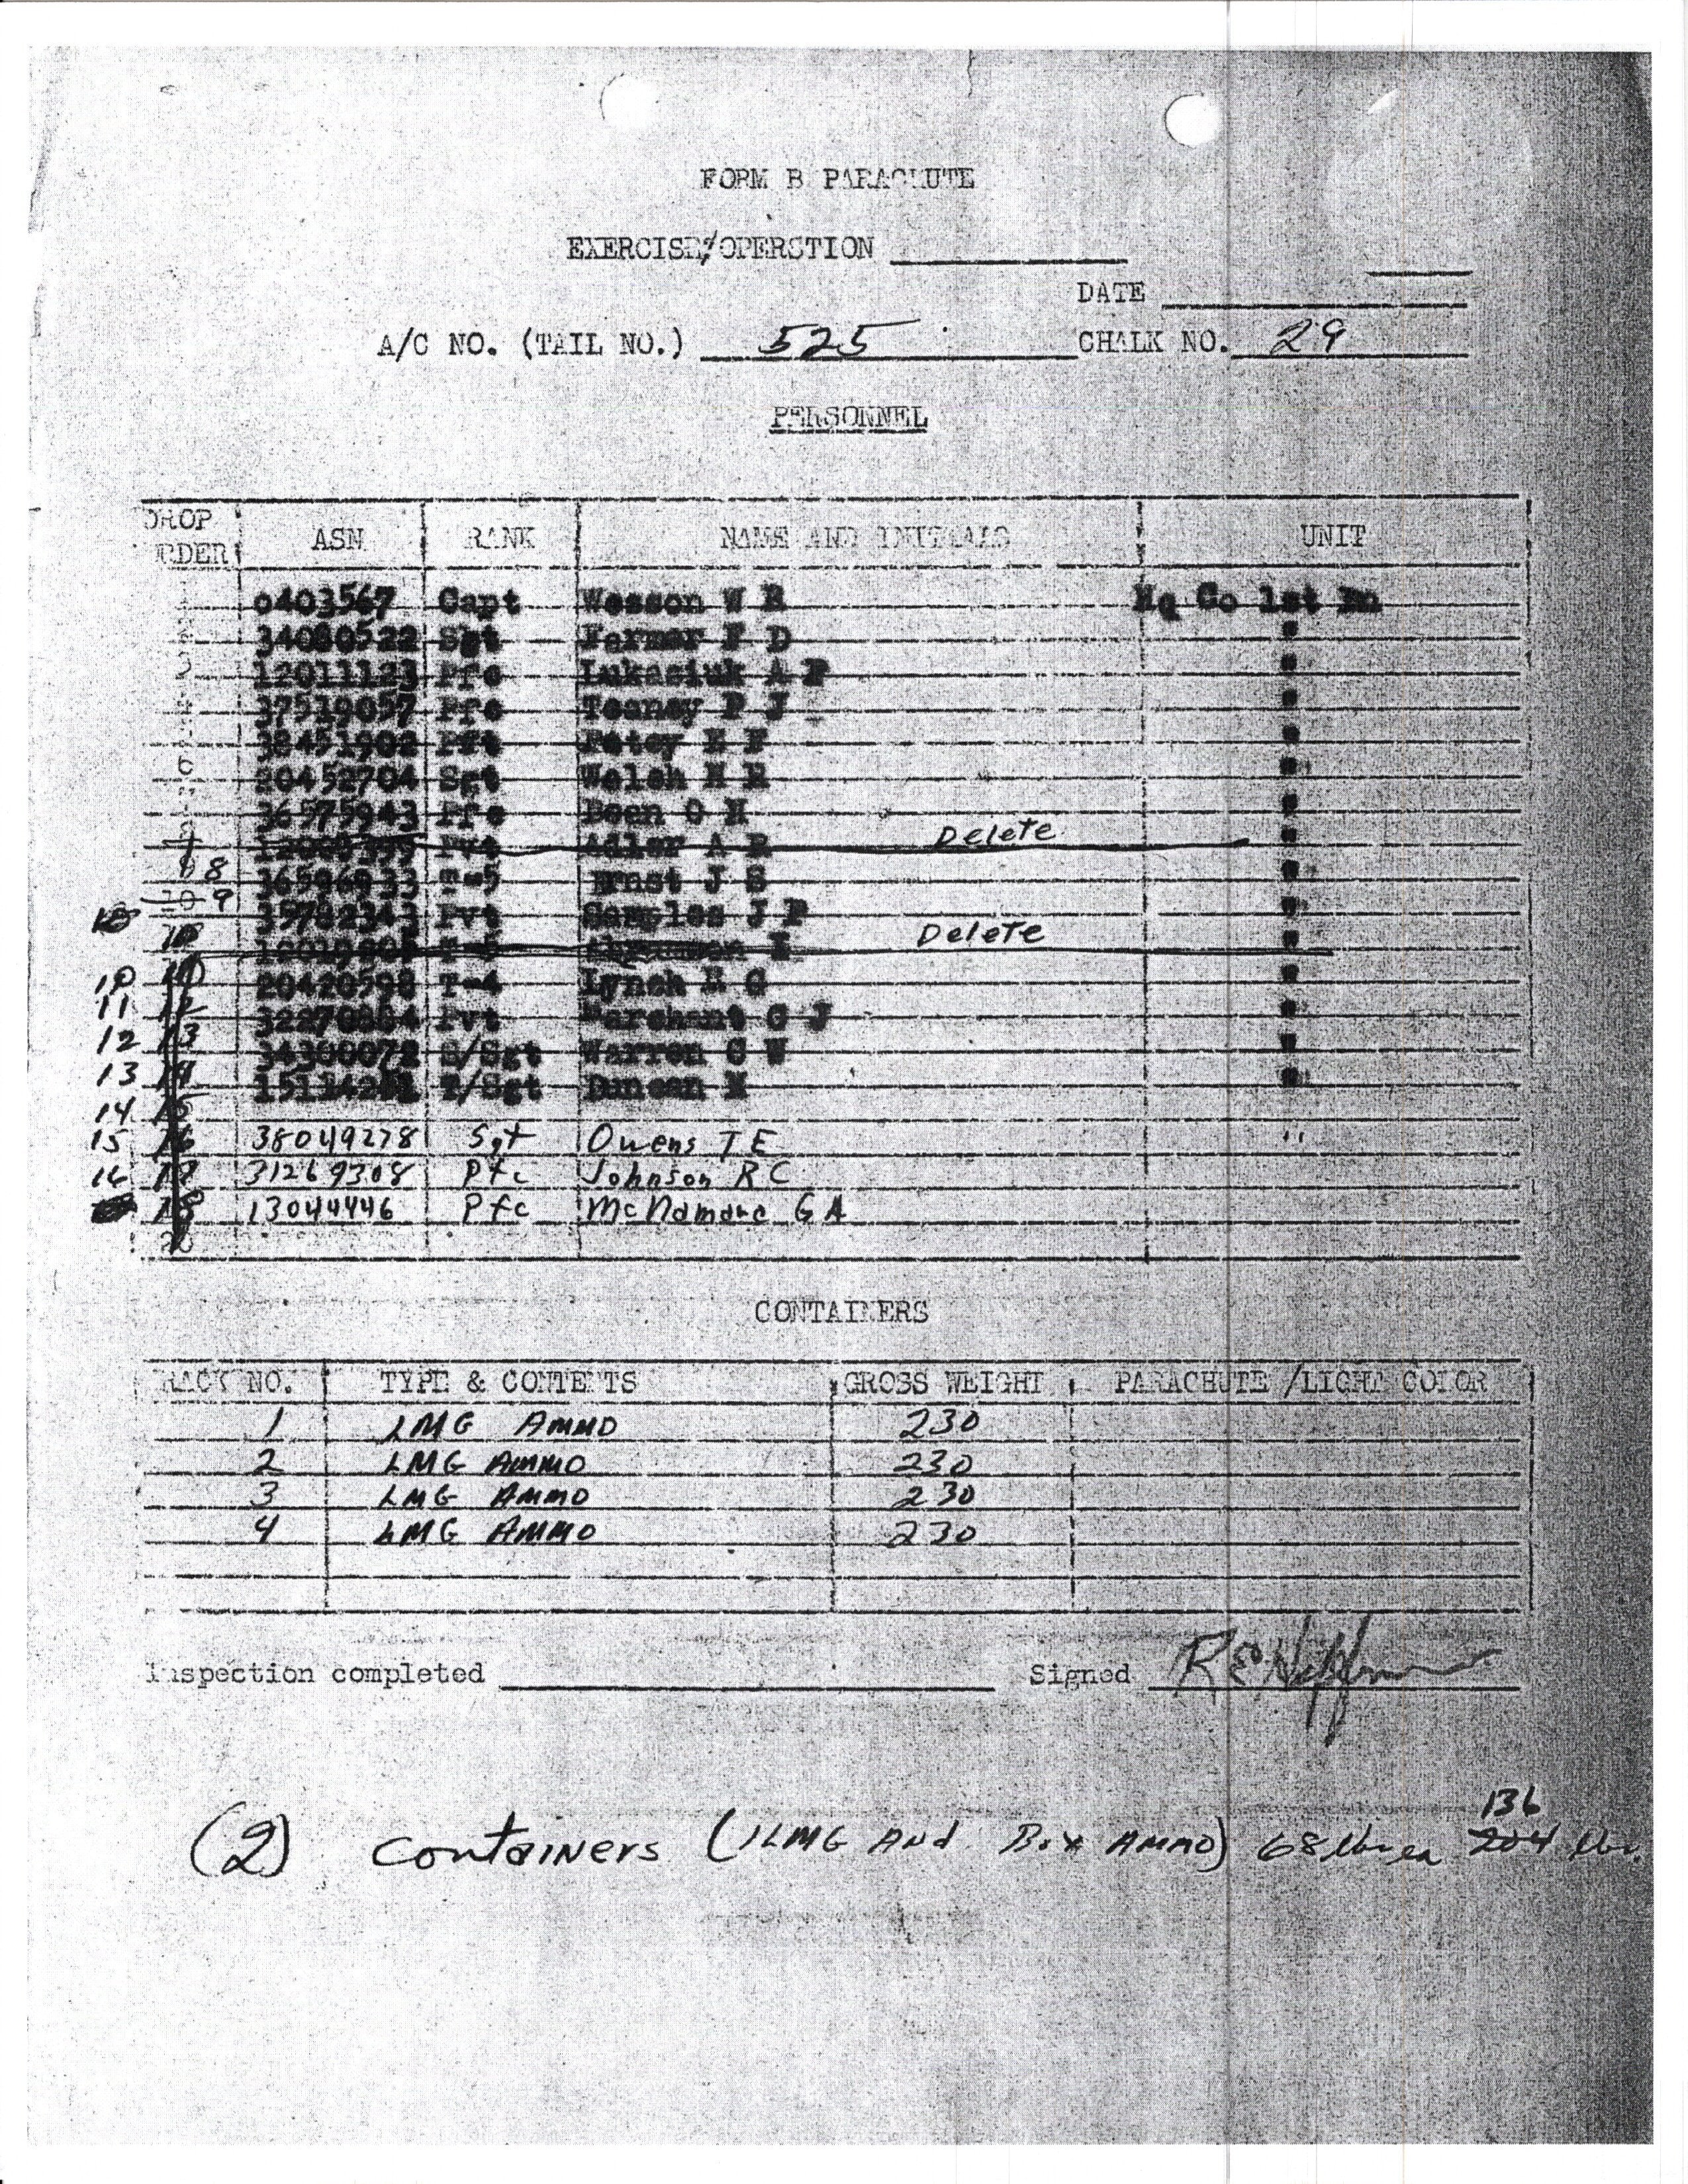 FORM B PARACHUTE
EXERCISE/OPERSTION
DATE
A/C NO. (TAIL NO.) 525 CHALK NO. 29
PERSONNEL
DROP ORDER ASN RANK NAME AND INITIALS UNIT
0403567 Capt Wesson W R Hq Co 1st Bn
34080522 Sgt Farmer F D "
12011123 Pfc Lukasiuk A P "
37519057 Pfc Teaney P J "
38451902 "
6 20452704 Sgt Welch H R "
36575943 Pfc Been O H "
Pvt Adler A Delete "
8 36596933 T-5 Ernst J S "
9 35782343 Pvt Samples J P "
Delete "
10 20420598 T-4 Lynch R G "
11 12 Pvt Marchant G J "
12 13 34300072 S/Sgt Warren G W "
13 14 T/Sgt Duncan "
14 15
15 16 38049278 Sgt Owens T E "
16 17 31269308 Pfc Johnson R C
18 13044446 Pfc McNamara G A
20
CONTAINERS
RACK NO. TYPE & CONTENTS GROSS WEIGHT PARACHUTE /LIGHT COLOR
1 LMG AMMO 230
2 LMG AMMO 230
3 LMG AMMO 230
4 LMG AMMO 230
Inspection completed Signed
136
(2) Containers (1 LMG And Box AMMO) 68 lbs ea 204 lbs.